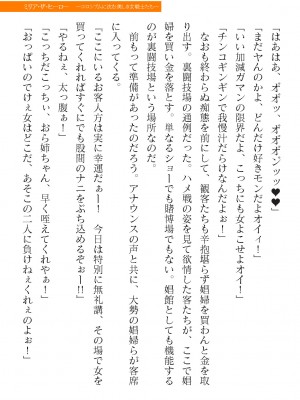 「はぁはぁ、オオッ　オオオンッッ♥♥」
「まだヤんのかよ、どんだけ好きモンだよオイィ！」
「いい加減ガマンの限界だよ、こっちにも女よこせよオイ！」
「チンコギンギンで我慢汁だらけなんだよぉ！」
　なおも終わらぬ痴態を前にして、観客たちも辛抱堪らず娼婦を買わんと金を取
り出す。裏闘技場の通例だった。ハメ戦の姿を見て欲情した客たちが、ここで娼
婦を買い金を落とす。単なるショーでも賭博場でもない。娼館としても機能する
のが裏闘技場という場所なのだ。
　前もって準備があったのだろう。アナウンスの声と共に、大勢の娼婦らが客席
に入ってくる。
『ここにいるお客人方は実に幸運だぁーー！　今日は特別に無礼講、その場で女を
買ってくれればすぐにでも股間のナニをぶち込めるぞぉーー!!』
「やるねぇ、太っ腹ぁ！」
「こっちだこっちぃ、おら姉ちゃん、早く咥えてくれやぁ！」
「おっぱいのでけぇ女はどこだ、あそこの二人に負けねぇくれぇのよぉー！」